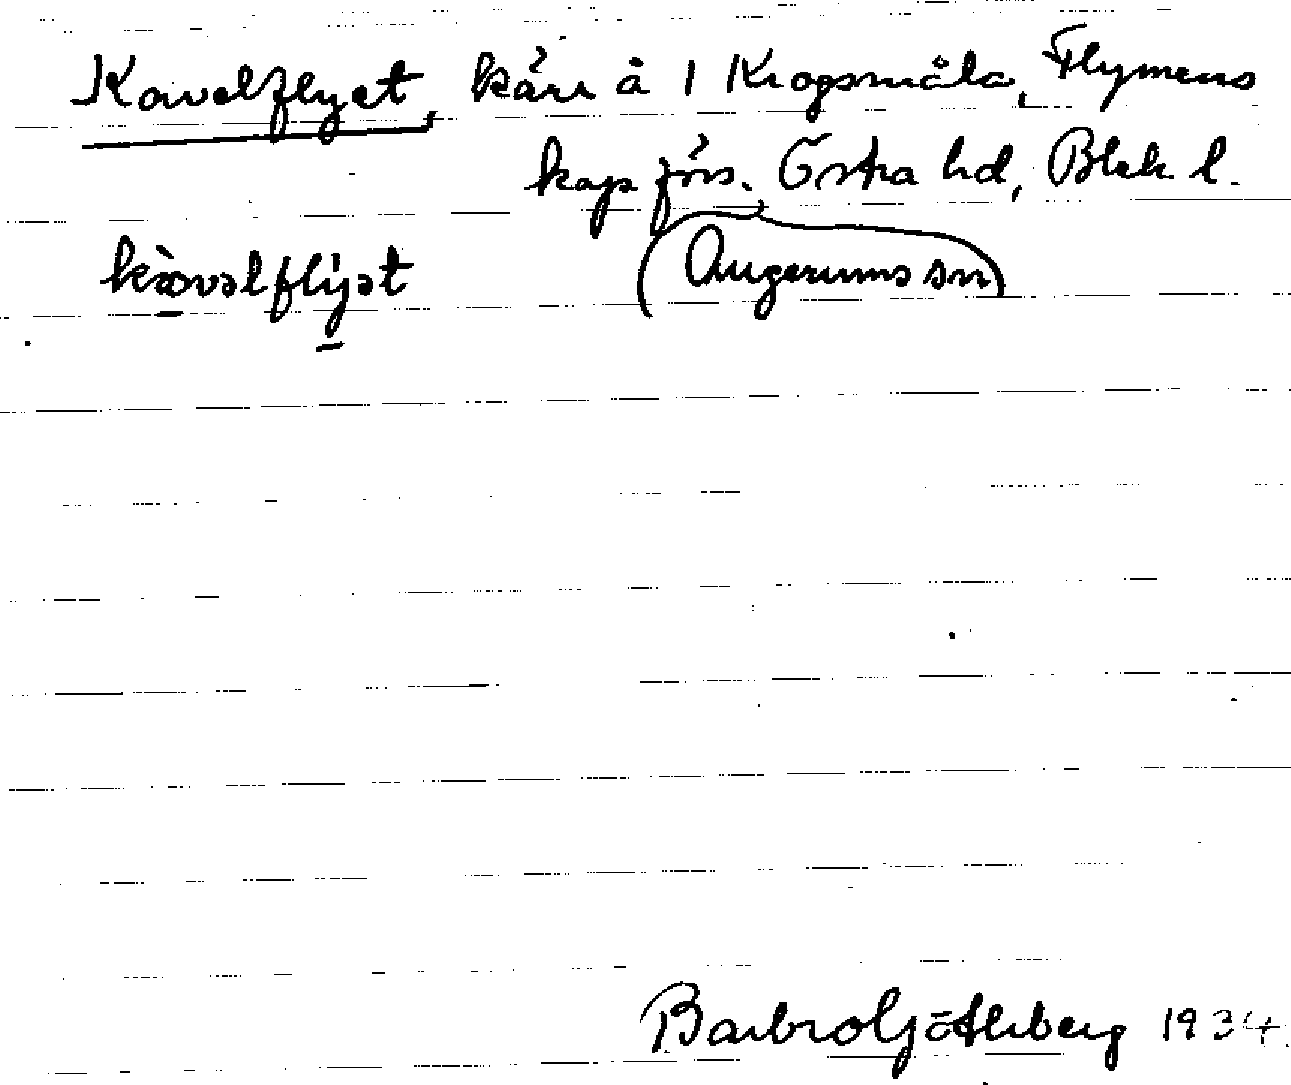 Kavelflyet, kärr å 1 Krogsmåla, Flymens
kap förs. Östra hd, Blek. l.
(Augerums sn)
Barbro Götlihberg 1934.